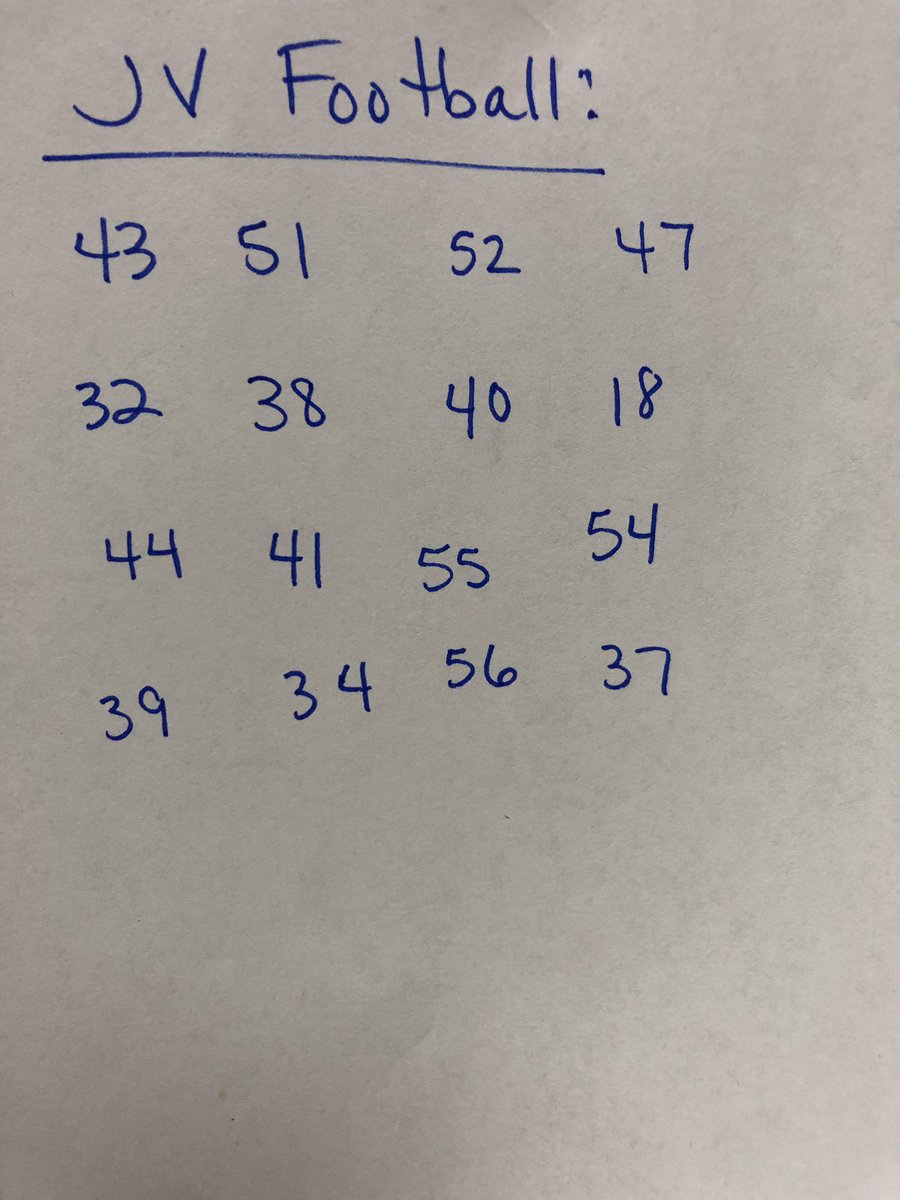 JV Football:
43 51 52 47
32 38 40 18
44 41 55 54
39 34 56 37